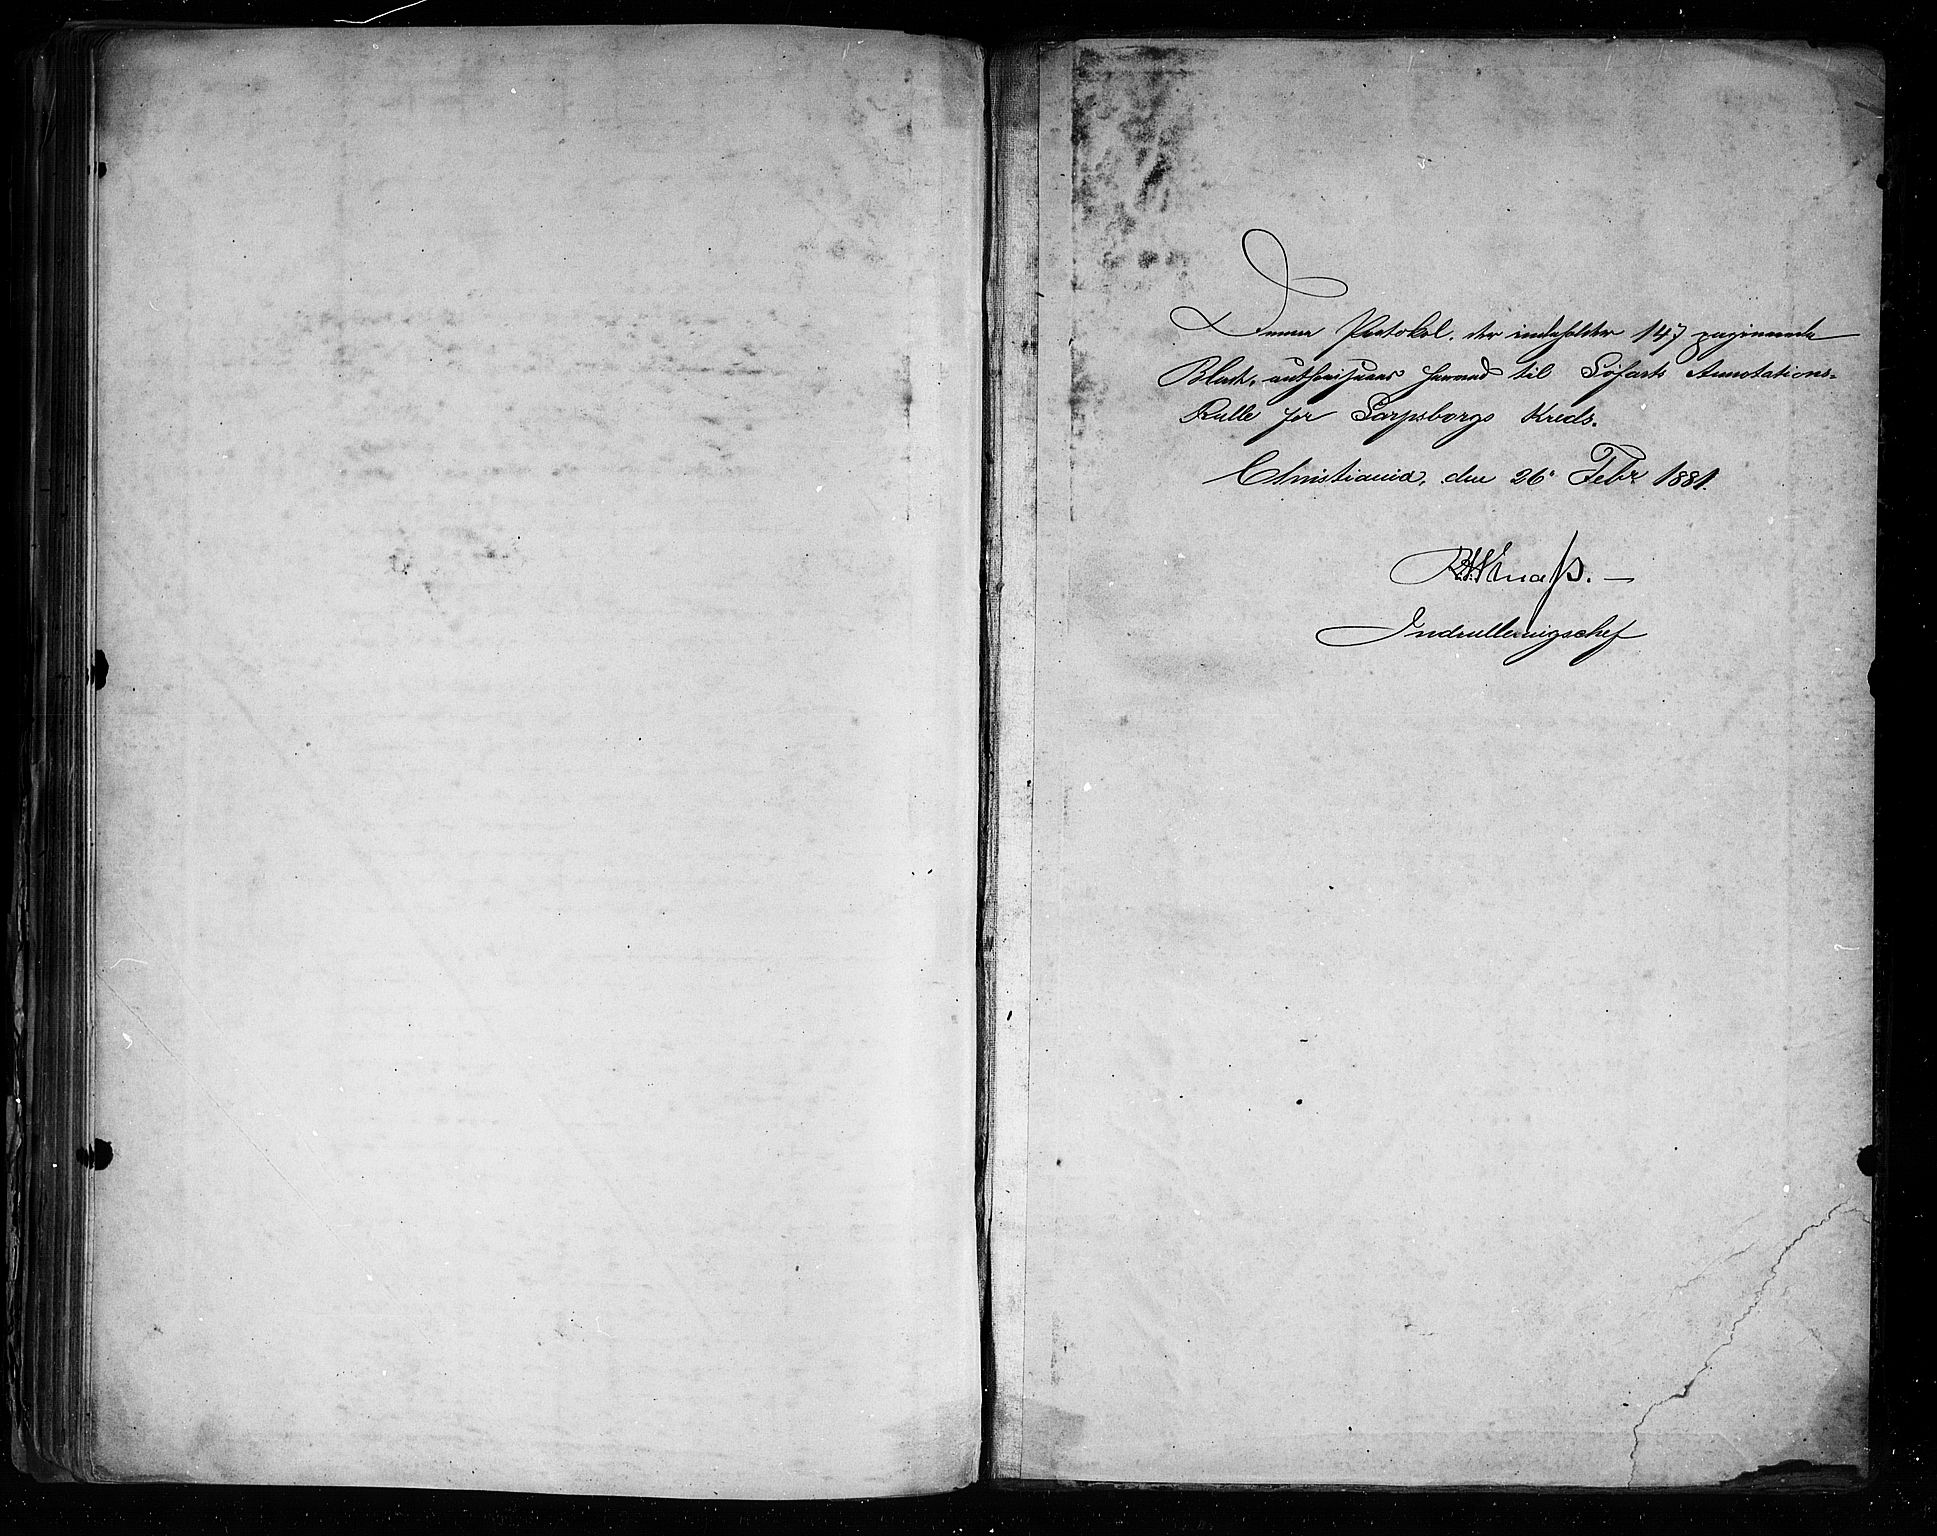 Denne Protokol, der indeholder 147 paginerede
Blade, authoriseres herved til Søfarts Annotations-
Rulle for Sarpsborgs Kreds.
Christiania, den 26' Febr 1881.
Indrulleringschef